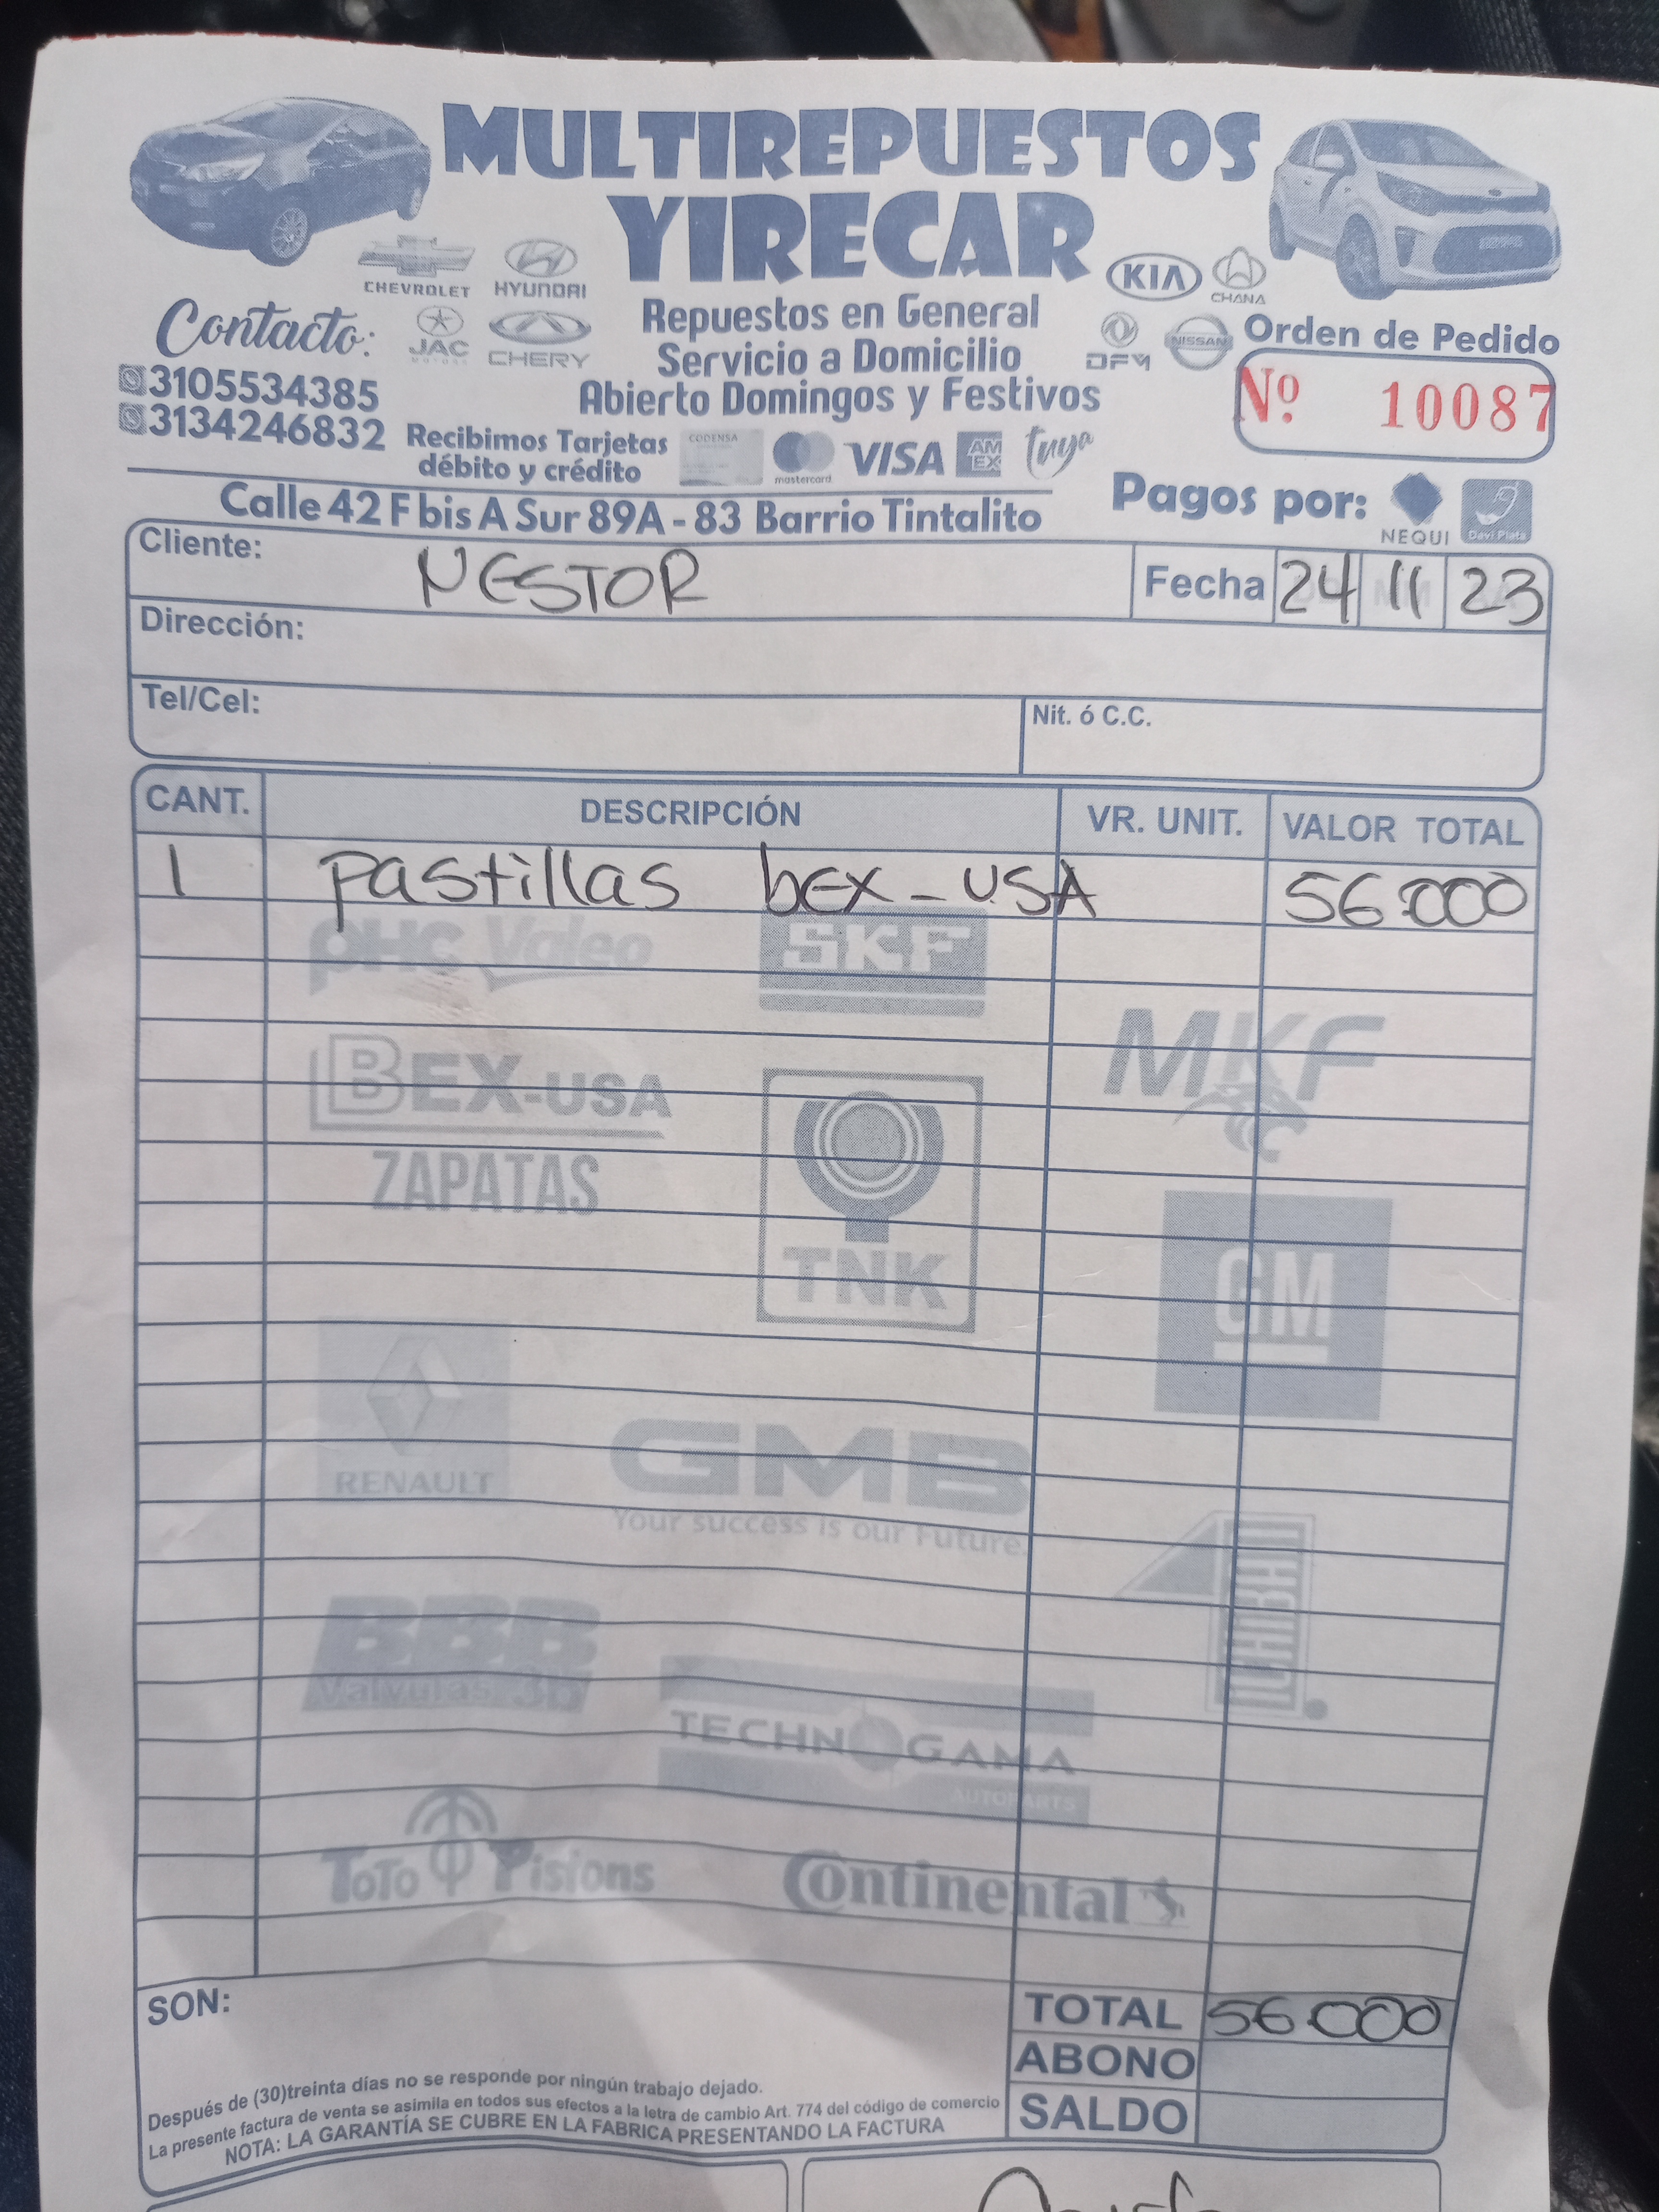 MULTIREPUESTOS
YIRECAR
CHEVROLET HYUNDAI
KIA CHANA
Contacto:
JAC MOTORS CHERY
Repuestos en General
Servicio a Domicilio
Abierto Domingos y Festivos
DFM NISSAN
Orden de Pedido
Nº 10087
3105534385
3134246832
Recibimos Tarjetas
débito y crédito
CODENSA mastercard VISA AM EX tuya
Pagos por: NEQUI Davi Plata
Calle 42 F bis A Sur 89A - 83 Barrio Tintalito
Cliente: NESTOR Fecha 24 11 23
Dirección:
Tel/Cel: Nit. ó C.C.
CANT. DESCRIPCIÓN VR. UNIT. VALOR TOTAL
1 pastillas bEX - USA 56.000
PHC Valeo SKF
BEX-USA MKF
ZAPATAS
TNK
GM
RENAULT
GMB
Your success is our Future.
BBB
Valvulas 3b
TECHNOGAMA
AUTOPARTS
TOTO Pistons Continental
SON:
TOTAL 56.000
ABONO
SALDO
Después de (30)treinta días no se responde por ningún trabajo dejado.
La presente factura de venta se asimila en todos sus efectos a la letra de cambio Art. 774 del código de comercio
NOTA: LA GARANTÍA SE CUBRE EN LA FABRICA PRESENTANDO LA FACTURA